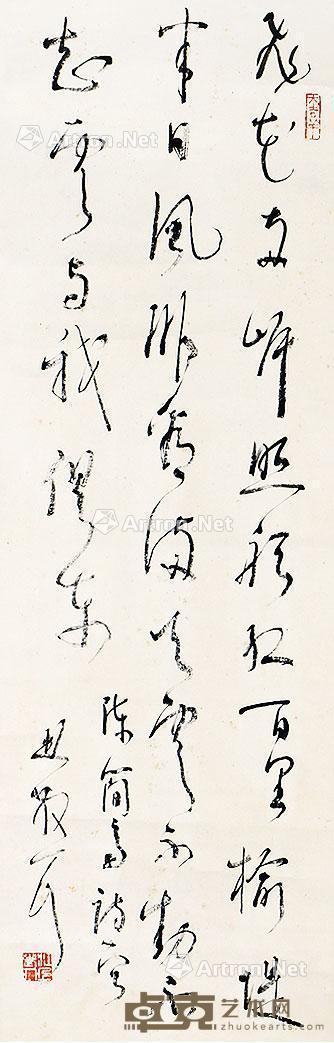 飞花两岸照船红百里榆堤
半日风卧看满天云不动不
知云与我俱东
陈简斋诗
散耳
Artron.Net
Artron.Net
Artron.Net
Artron.Net
Artron.Net
卓克艺术网
www.zhuokearts.com